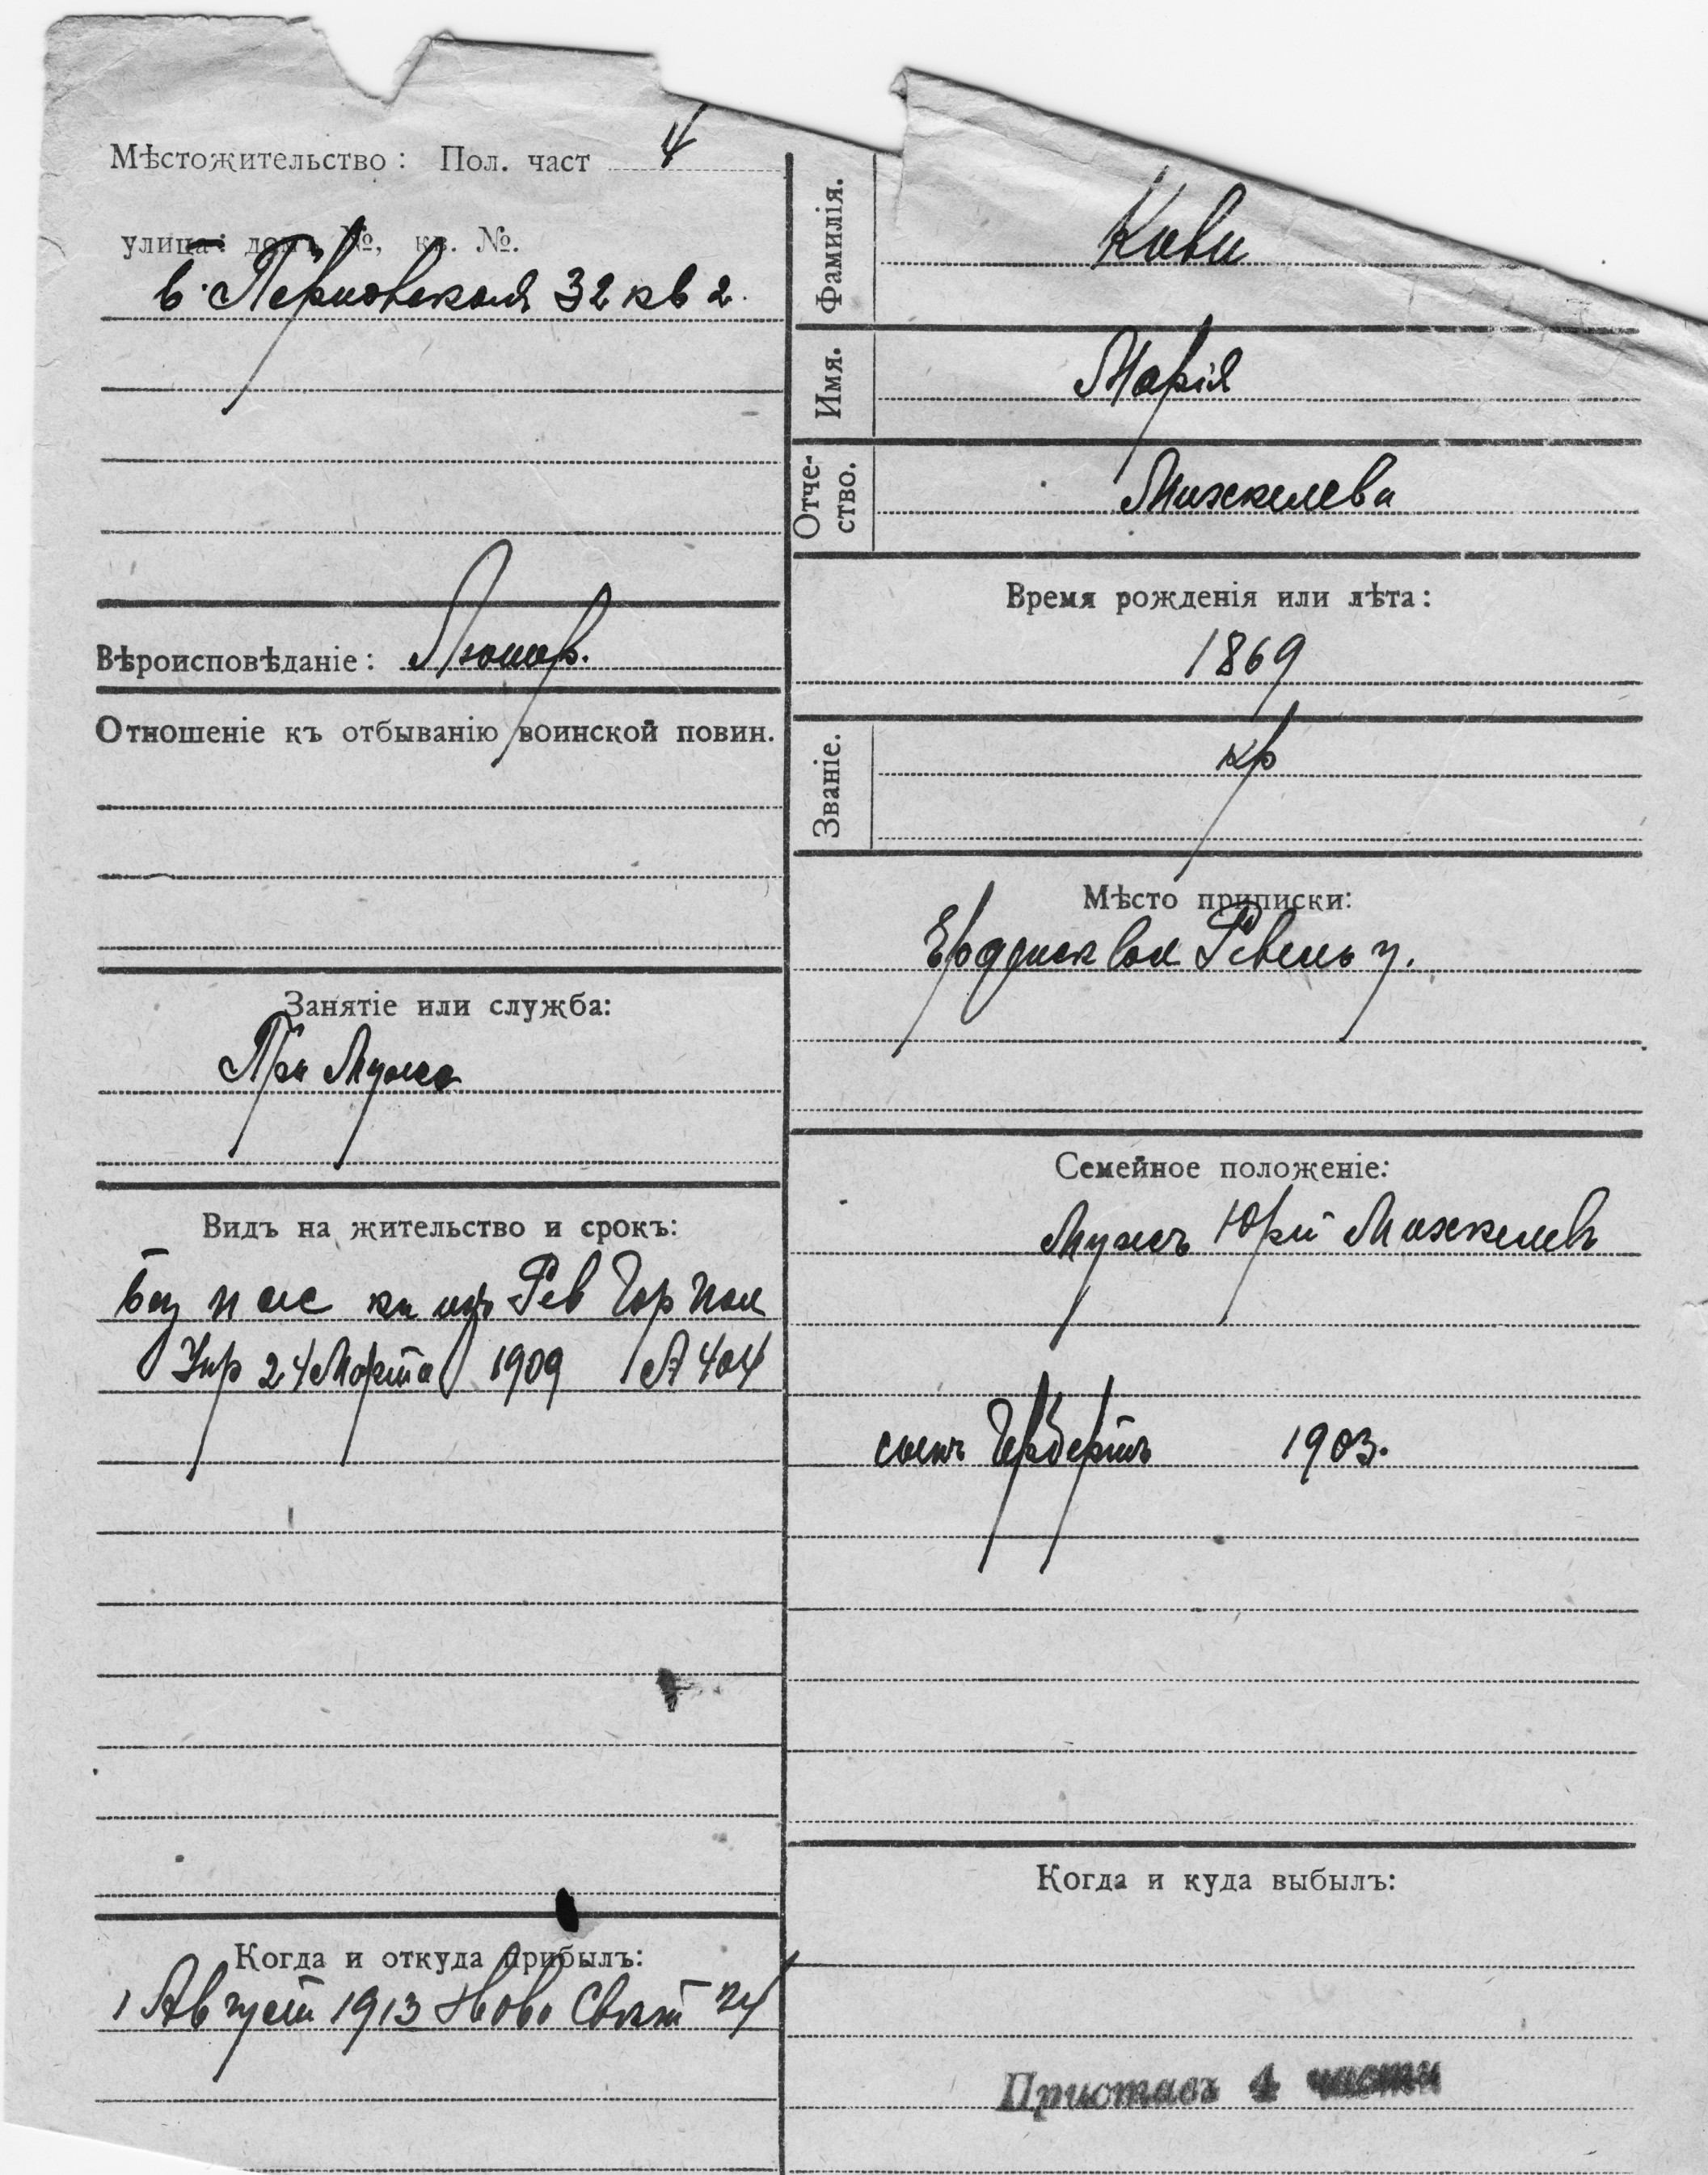 Мѣстожительство: Пол. част 4
улица: домъ №, кв. №.
б. Перновская 32 кв 2.
Вѣроисповѣданіе: Лютер.
Отношеніе къ отбыванію воинской повин.
Занятіе или служба:
При Мужѣ
Видъ на жительство и срокъ:
пас кн изъ Рев Гор Пол
Упр 24 Марта 1909 № 404
Когда и откуда прибылъ:
1 Август 1913 Ново 24
Фамилія.
Киви
Имя.
Марія
Отче-
ство.
Михкелева
Время рожденія или лѣта:
1869
Званіе.
кр
Мѣсто приписки:
вол Ревель у.
Семейное положеніе:
Мужъ Юрій Михкелевъ
сынъ Гербертъ 1903.
Когда и куда выбылъ:
Приставъ 4 части